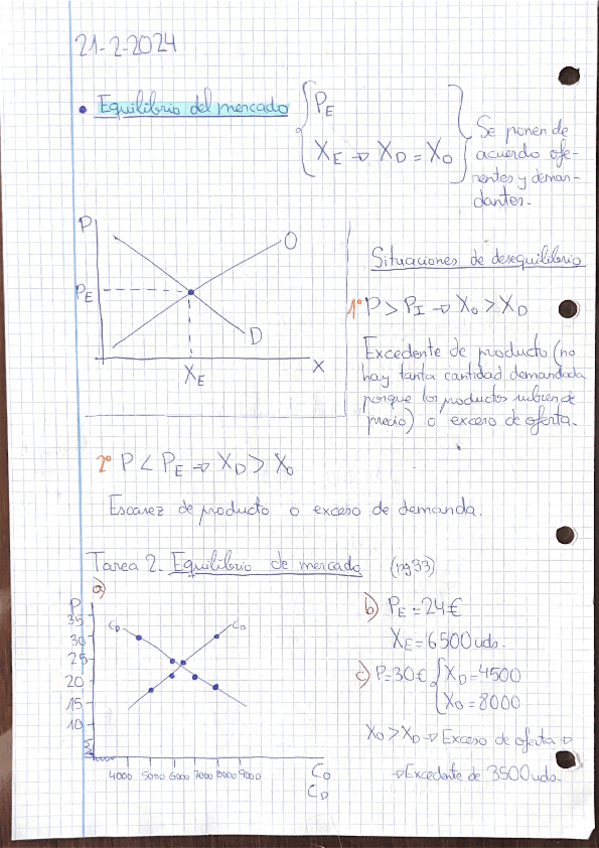 21-2-2024
• Equilibrio del mercado
P_E
X_E → X_D = X_O
Se ponen de
acuerdo ofe-
rentes y deman-
dantes.
P
O
P_E
D
X_E
X
Situaciones de desequilibrio
1º P > P_I → X_O > X_D
Excedente de producto (no
hay tanta cantidad demandada
porque los productos suben de
precio) o exceso de oferta.
2º P < P_E → X_D > X_O
Escasez de producto o exceso de demanda.
Tarea 2. Equilibrio de mercado (pg 33)
a)
P
35
30
25
20
15
10
C_D
C_O
4000 5000 6000 7000 8000 9000
C_O
C_D
b) P_E = 24€
X_E = 6500 uds.
c) P = 30€ X_D = 4500
X_O = 8000
X_O > X_D → Exceso de oferta →
→ Excedente de 3500 uds.